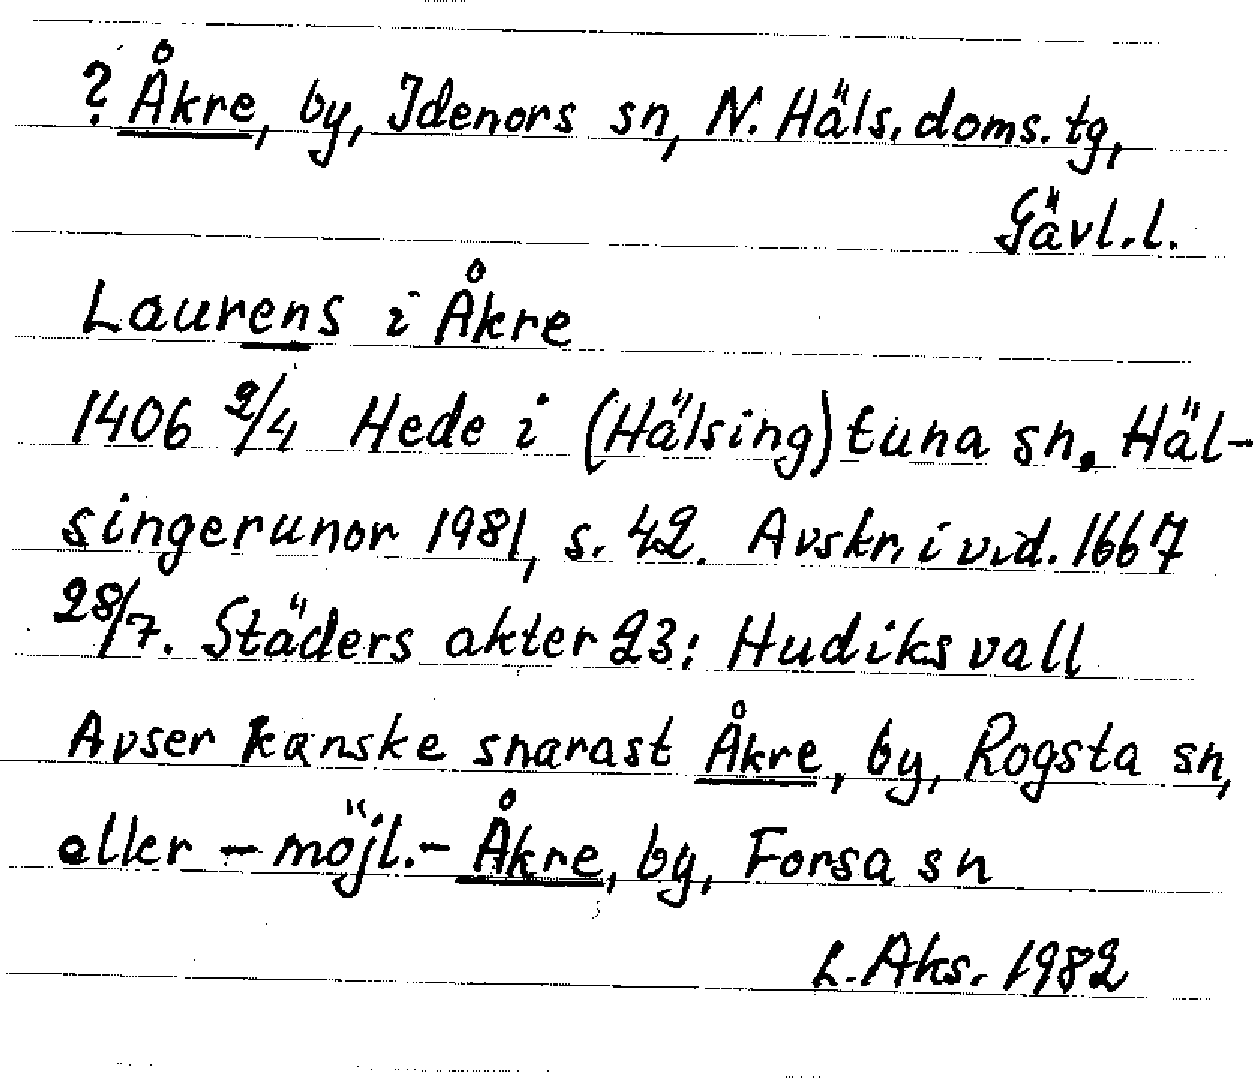 ? Åkre, by, Idenors sn, N. Häls. doms. tg,
Gävl. l.
Laurens i Åkre
1406 2/4 Hede i (Hälsing)tuna sn. Häl-
singerunor 1981, s. 42. Avskr. i vid. 1667
28/7. Städers akter 23: Hudiksvall
Avser kanske snarast Åkre, by, Rogsta sn,
eller - möjl. - Åkre, by, Forsa sn
L. Aks. 1982